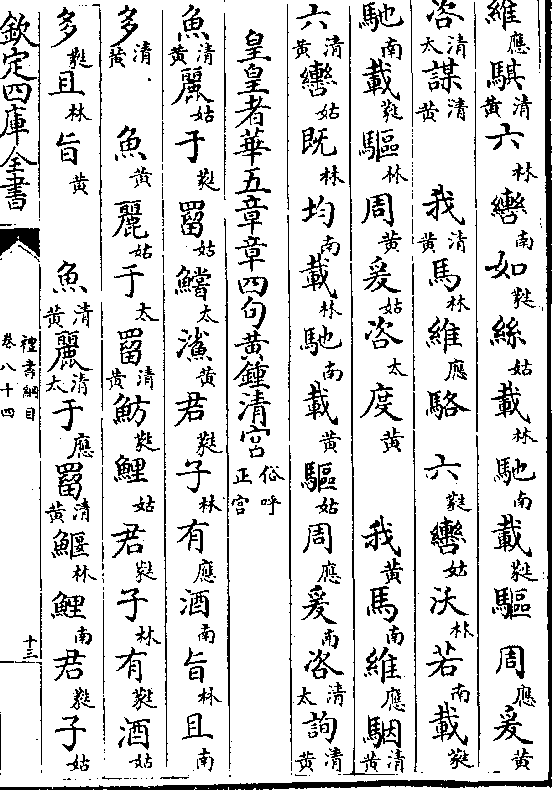 維應騏清黃六林轡南如蕤絲姑載林馳南載蕤驅周應爰黃
咨清太謀清黃　我清黃馬林維應駱六蕤轡姑沃林若南載蕤
馳南載蕤驅林周黃爰姑咨太度黃　我黃馬南維應駰清黃
六清黃轡姑既林均南載林馳南載黃驅姑周應爰南咨清太詢清黃
皇皇者華五章章四句黃鍾清宮俗呼正宮
魚清黃麗姑于蕤罶姑鱨太鯊黃君蕤子林有應酒南旨林且南
多清黃　魚黃麗姑于太罶清黃魴蕤鯉姑君蕤子林有蕤酒姑
多蕤且林旨黃　魚清黃麗清太于應罶清黃鰋林鯉南君蕤子姑
欽定四庫全書
禮書綱目
卷八十四
十三